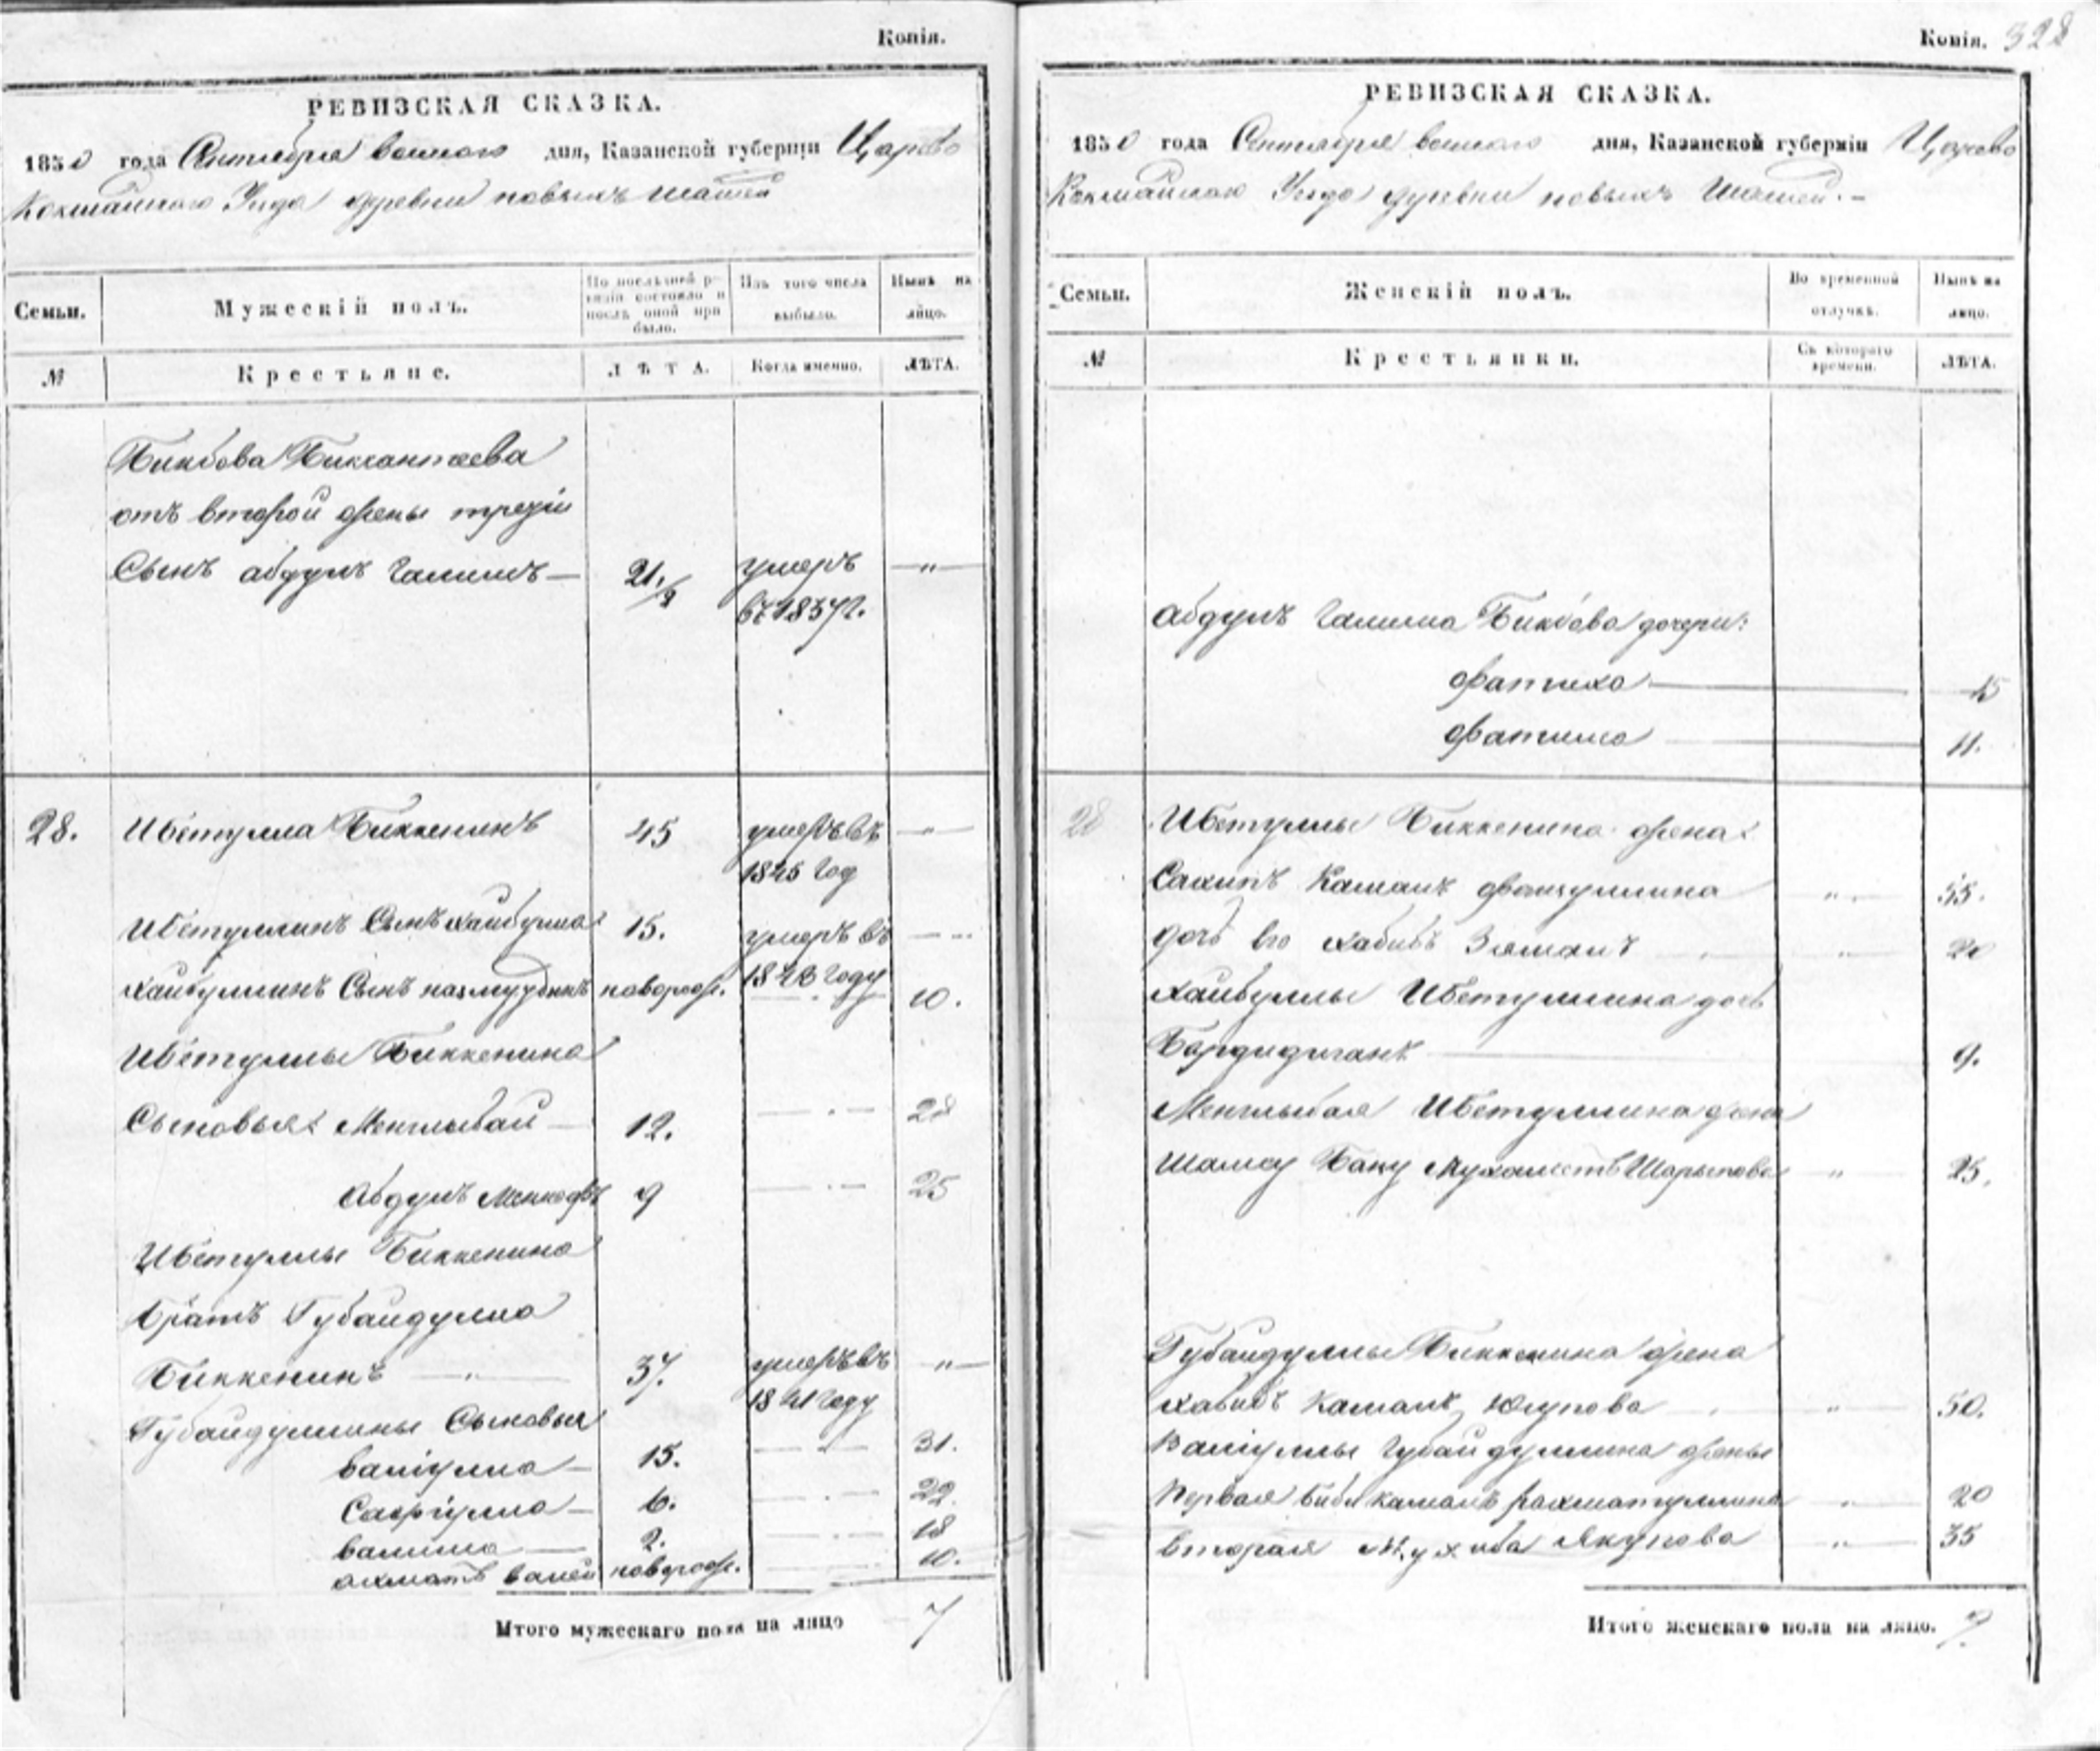 Копія.
РЕВИЗСКАЯ СКАЗКА.
1850 года Сентября дня, Казанской губерніи Царево
Кокшайскаго Уезда деревни новыхъ Шашей
Семьи.
Мужескій полъ.
По послѣдней ревизіи состояло и послѣ оной прибыло.
Изъ того числа выбыло.
Нынѣ на лицо.
№
Крестьяне.
ЛѢТА.
Когда именно.
ЛѢТА.
Бикбова Биккантаева
отъ второй жены третій
Сынъ абдулъ Галимъ — 21/2 умеръ — „ —
въ 1837 г.
28. Ибетулла Биккенинъ 45 умеръ въ — „ —
1845 год
Ибетуллинъ Сынъ хаибулла 15. умеръ въ — „ —
1843 году
хаибуллинъ Сынъ назмудинъ новорож. — „ — 10.
Ибетуллы Биккенина
Сыновья: Менглыбай — 12. — „ — 28
Абдулъ 9 — „ — 25
Ибетуллы Биккенина
братъ Губайдулла
Биккенинъ — „ — 37. умеръ въ — „ —
1841 году
Губайдуллины Сыновья
валіулла — 15. — „ — 31.
Сафіулла — 6. — „ — 22.
валиша — 2. — „ — 18
ахматъ валей новорож. — „ — 10.
Итого мужескаго пола на лицо 7
Копія. 328
РЕВИЗСКАЯ СКАЗКА.
1850 года Сентября дня, Казанской губерніи Царево
Кокшайскаго Уезда деревни новыхъ Шашей. —
Семьи.
Женскій полъ.
Во временной отлучкѣ.
Нынѣ на лицо.
№
Крестьянки.
Съ котораго времени.
ЛѢТА.
Абдулъ Галима Бикбова дочери:
фатиха — 15
фатима — 11.
28 Ибетуллы Биккенина жена:
Сахипъ Камалъ файзуллина — „ — 55.
дочь его хабибъ Зямалъ — „ — 20
хаибуллы Ибетуллина дочь
— 9.
Менглыбая Ибетуллина жена
Шамсу Бану Мухаметъ Шарыпова — „ — 25.
Губайдуллы Биккенина жена
хабибъ Камалъ Юсупова — „ — 50.
Валіуллы Губайдуллина жены
Первая биби камалъ рахматуллина — „ — 20
вторая Якупова — „ — 35
Итого женскаго пола на лицо. 9